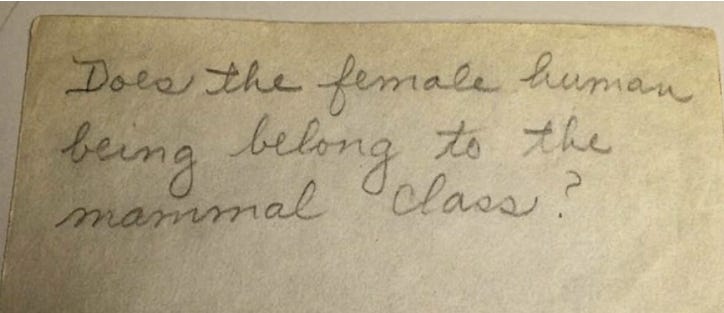 Does the female human
being belong to the
mammal class?